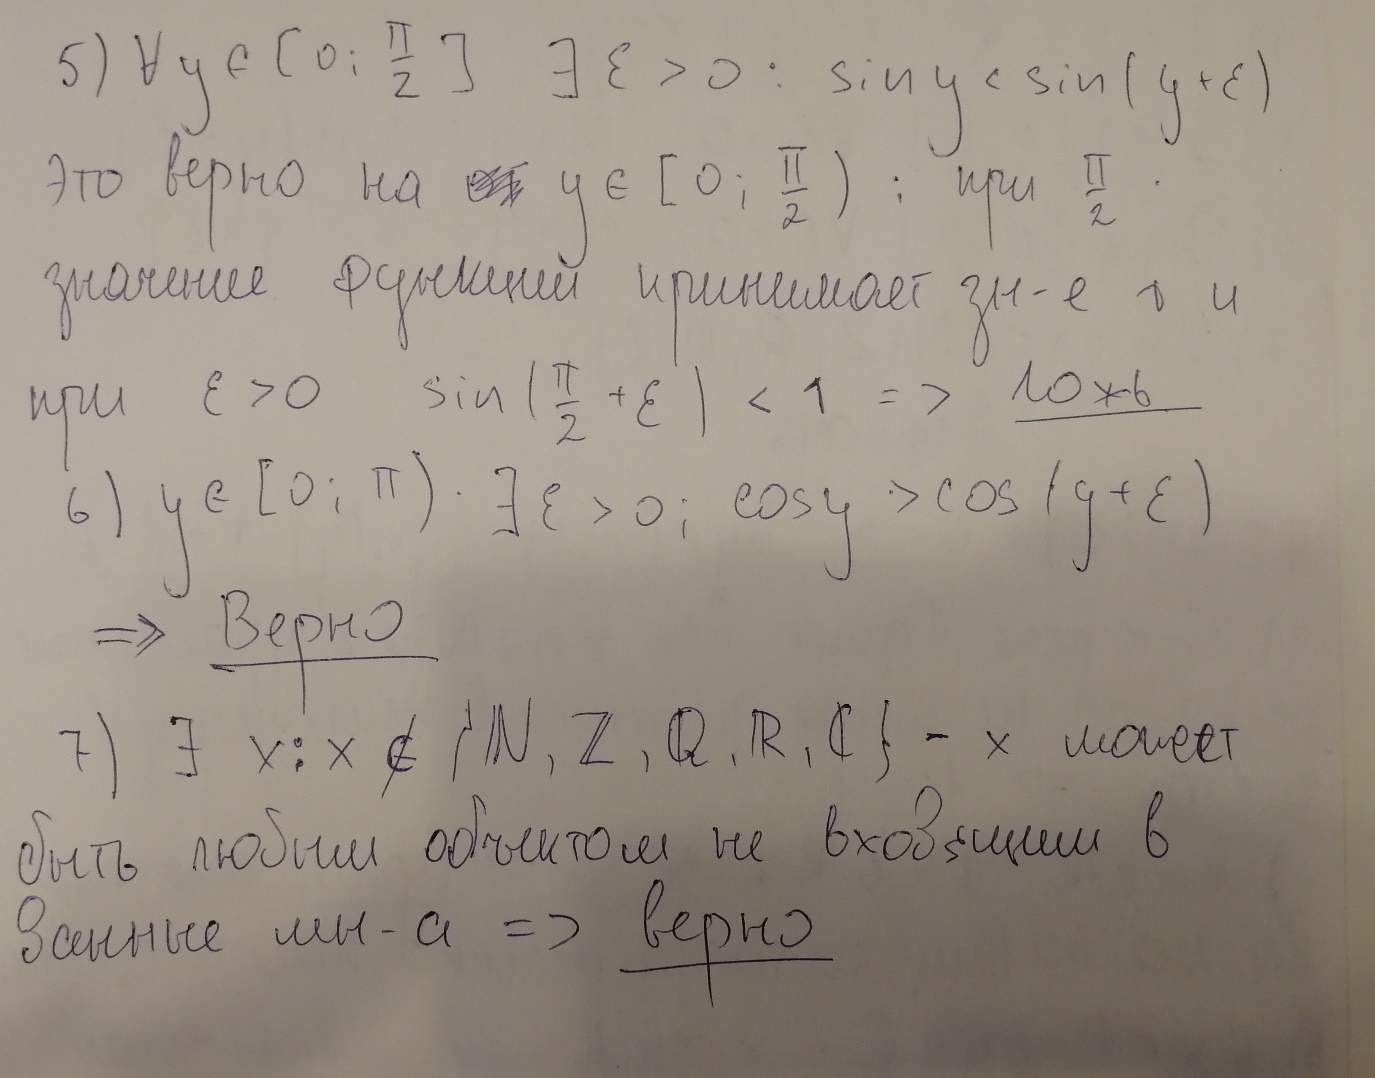 5) ∀ y ∈ [0; π/2] ∃ ε > 0 : sin y < sin(y+ε)
Это верно на y ∈ [0; π/2) ; при π/2
значение функций принимает зн-е 1 и
при ε > 0 sin(π/2 + ε) < 1 => ложь
6) y ∈ [0; π) ∃ ε > 0; cos y > cos(y+ε)
=> Верно
7) ∃ x : x ∉ {ℕ, ℤ, ℚ, ℝ, ℂ} - x может
быть любым объектом не входящим в
данные мн-а => верно